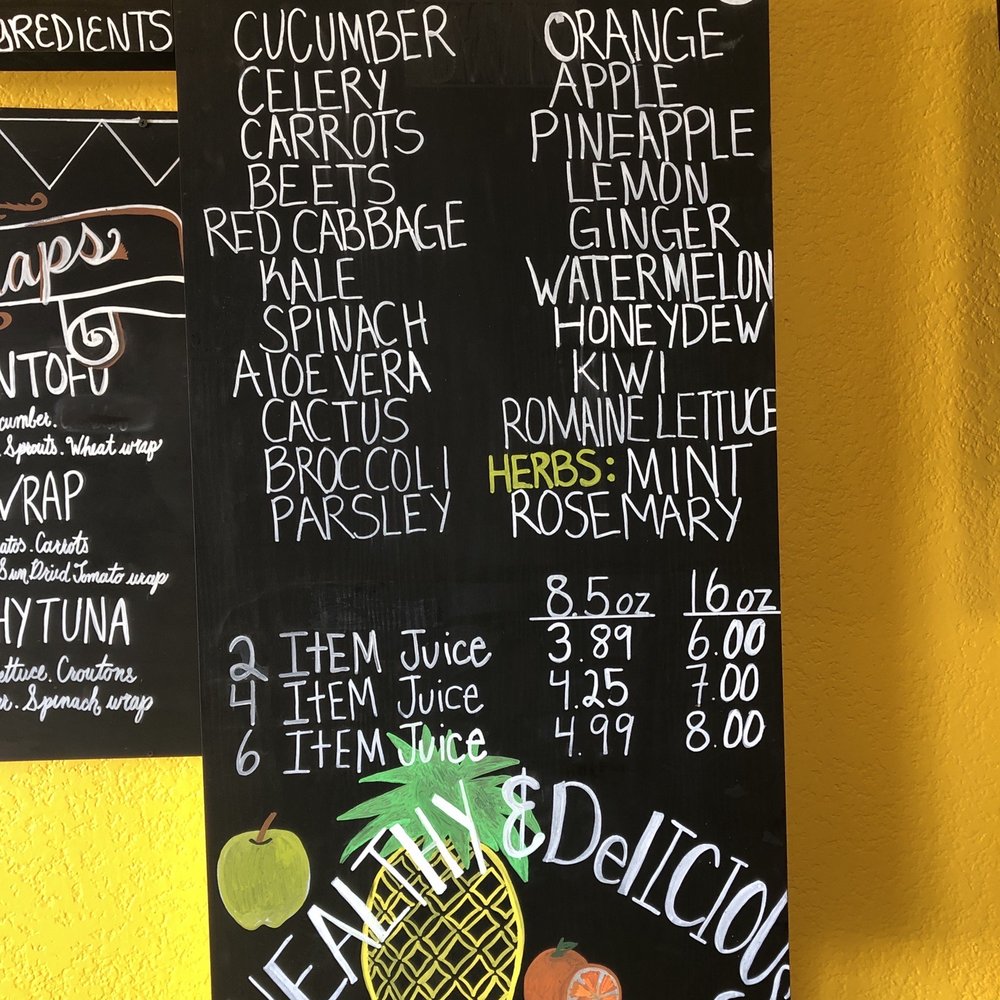 CUCUMBER
CELERY
CARROTS
BEETS
RED CABBAGE
KALE
SPINACH
AlOE VERA
CACTUS
BROCCOLI
PARSLEY
ORANGE
APPLE
PINEAPPLE
LEMON
GINGER
WATERMELON
HONEYDEW
KIWI
ROMAINE LETTUCE
HERBS: MINT
ROSEMARY
8.5 oz 16 oz
2 ItEM Juice 3.89 6.00
4 ItEM Juice 4.25 7.00
6 ItEM Juice 4.99 8.00
HEALTHY & DelICIOUS
GREDIENTS
aps
N TOFU
cumber.
Sprouts. Wheat wrap
WRAP
atos. Carrots
Sun Dried Tomato wrap
HY TUNA
ettuce. Croutons
r. Spinach wrap